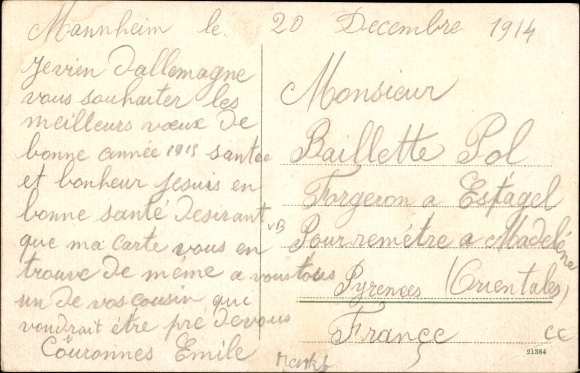 Mannheim le 20 Decembre 1914
Jevien Dallemagne
vous souhaiter les
meilleurs vœux de
bonne année 1915 santee
et bonheur Jesuis en
bonne santé Desirant
que ma carte vous en
trouve de même a vous tous
un de vos cousin que
voudrait être pré Devous
Couronnes Emile
Monsieur
Baillette Pol
Forgeron a Estagel
Pour remétre a Madeléne
Pyrenées (Orientales)
Françe
21384